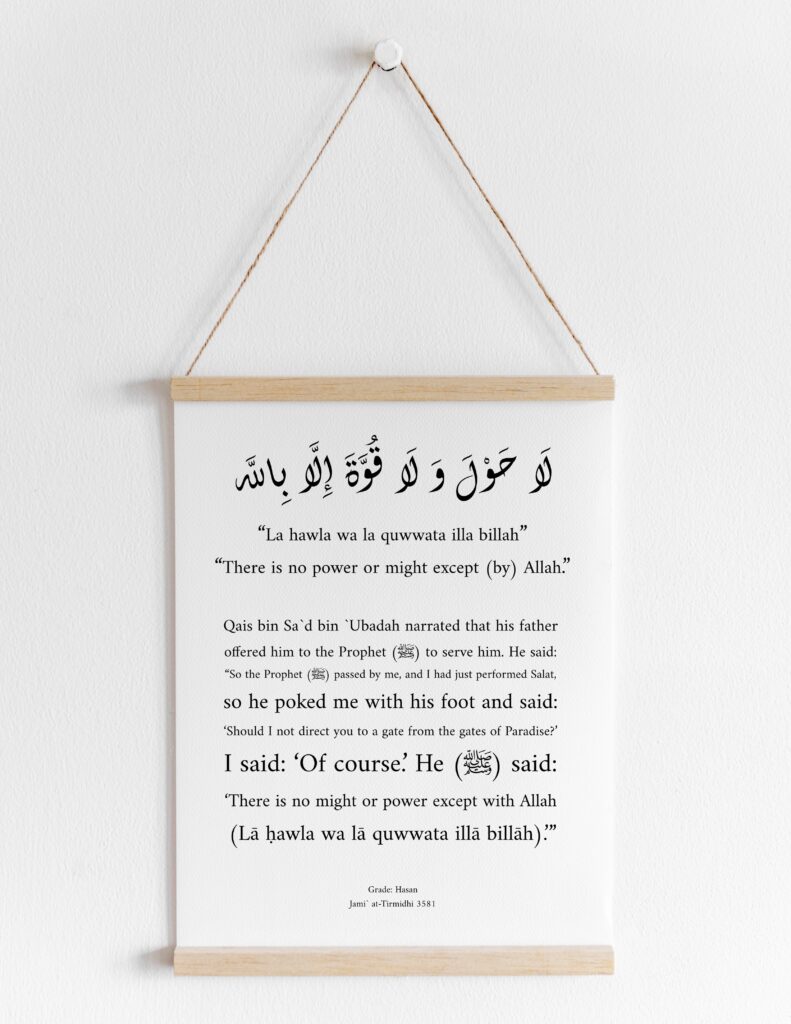 لَا حَوْلَ وَ لَا قُوَّةَ إِلَّا بِاللَّه
“La hawla wa la quwwata illa billah”
“There is no power or might except (by) Allah.”
Qais bin Sa`d bin `Ubadah narrated that his father
offered him to the Prophet (ﷺ) to serve him. He said:
“So the Prophet (ﷺ) passed by me, and I had just performed Salat,
so he poked me with his foot and said:
‘Should I not direct you to a gate from the gates of Paradise?’
I said: ‘Of course.’ He (ﷺ) said:
‘There is no might or power except with Allah
(Lā ḥawla wa lā quwwata illā billāh).’”
Grade: Hasan
Jami` at-Tirmidhi 3581